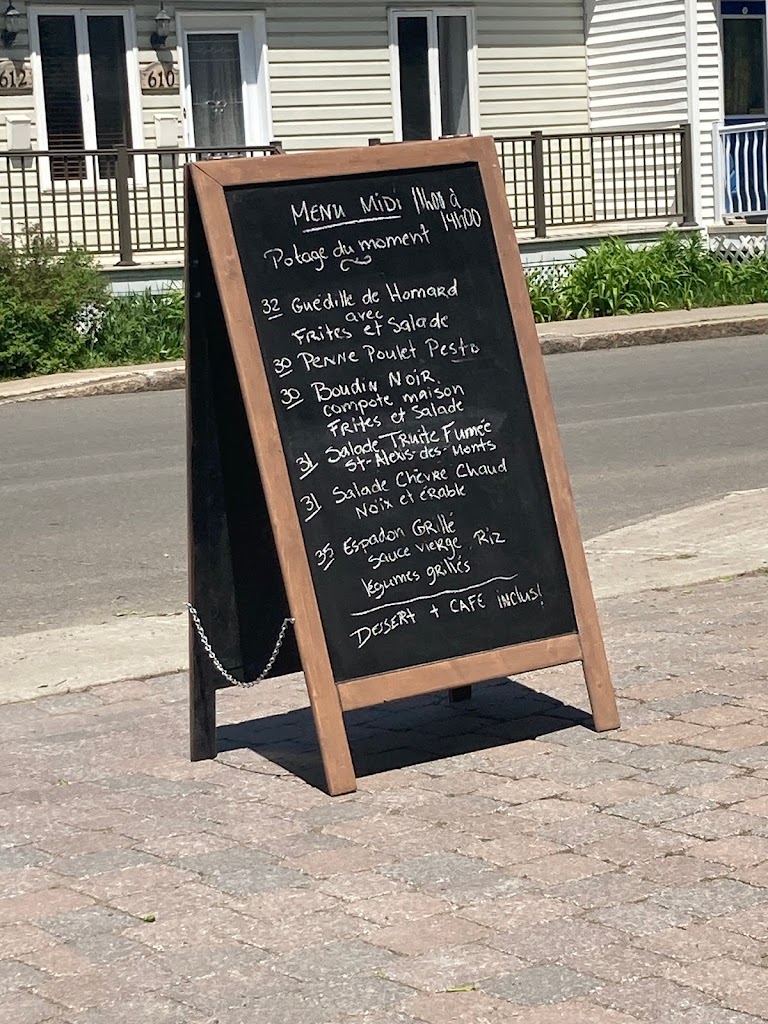 612
610
Menu Midi 11h00 à 14h00
Potage du moment
32 Guédille de Homard
avec
Frites et Salade
30 Penne Poulet Pesto
30 Boudin Noir
compote maison
Frites et Salade
31 Salade Truite Fumée
St-Alexis-des-Monts
31 Salade Chèvre Chaud
Noix et érable
35 Espadon Grillé
Sauce vierge Riz
légumes grillés
Dessert + CAFE inclus!